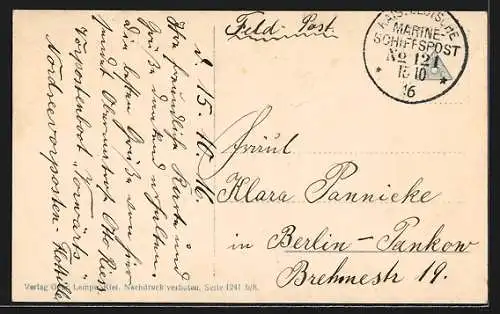 d. 15.10.16.
Ihre freundliche Karte und
Grüße dankend erhalten.
Die besten Grüße von hier
sendet Obermatrose Otto
Vorpostenboot "Vorwärts"
Nordseevorposten-Flottille
Feld-Post.
KAIS. DEUTSCHE
MARINE-
SCHIFFSPOST
No 121
15 10
16
Fräul
Klara Pannicke
in Berlin-Pankow
Brehmestr 19.
Verlag Kiel. Nachdruck verboten. Serie 1241 5/8.